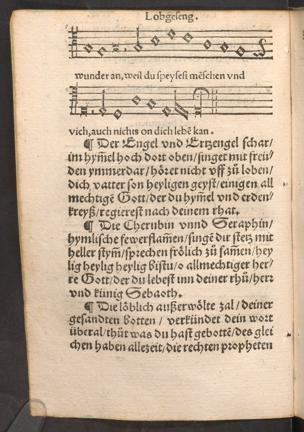 Lobgeseng.
wunder an, weil du speysest mēschen vnd
vich, auch nichts on dich lebē kan.
¶ Der Engel vnd Ertzengel schar/
im hym̄el hoch dort oben/singet mit freü/
den ymmerdar/ hŏret nicht vff zů loben/
dich vatter son heyligen geyst/einigen all
mechtigē Gott/der du hym̄el vnd erden/
kreyß/regierest nach deinem rhat.
¶ Die Cherubin vnnd Seraphin/
hymlische fewerflam̄en/singē dir stetz mit
heller stym̄/sprechen frŏlich zů sam̄en/hey
lig heylig heylig bistu/o allmechtiger her/
re Gott/der du lebest inn deiner rhů/herr
vnd künig Sebaoth.
¶ Die lŏblich außerwŏlte zal/deiner
gesandten botten/ verkündet dein wort
überal/thůt was du hast gebottē/des glei
chen haben allezeit/die rechten propheten